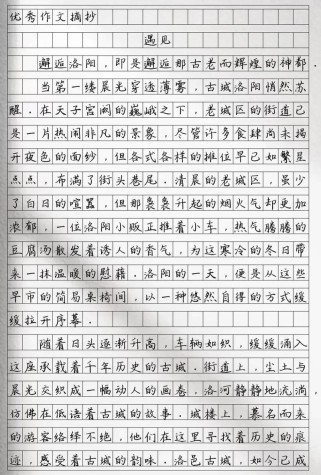 优秀作文摘抄
遇见
邂逅洛阳，即是邂逅那古老而辉煌的神都.
当第一缕晨光穿透薄雾，古城洛阳悄然苏
醒.在天子宫阙的巍峨之下，老城区的街道已
是一片热闹非凡的景象，尽管许多食肆尚未揭
开夜色的面纱，但各式各样的摊位早已如繁星
点点，布满了街头巷尾.清晨的老城区，虽少
了白日的喧嚣，但那袅袅升起的烟火气却更加
浓郁，一位洛阳小贩正推着小车，热气腾腾的
豆腐汤散发着诱人的香气，为这寒冷的冬日带
来一抹温暖的慰藉.洛阳的一天，便是从这些
早市的简易桌椅间，以一种悠然自得的方式缓
缓拉开序幕.
随着日头逐渐升高，车辆如织，缓缓涌入
这座承载着千年历史的古城.街道上，尘土与
晨光交织成一幅动人的画卷，洛河静静地流淌，
仿佛在低语着古城的故事.城楼上，慕名而来
的游客络绎不绝，他们在这里寻找着历史的痕
迹，感受着古城的韵味.洛邑古城，如今已成